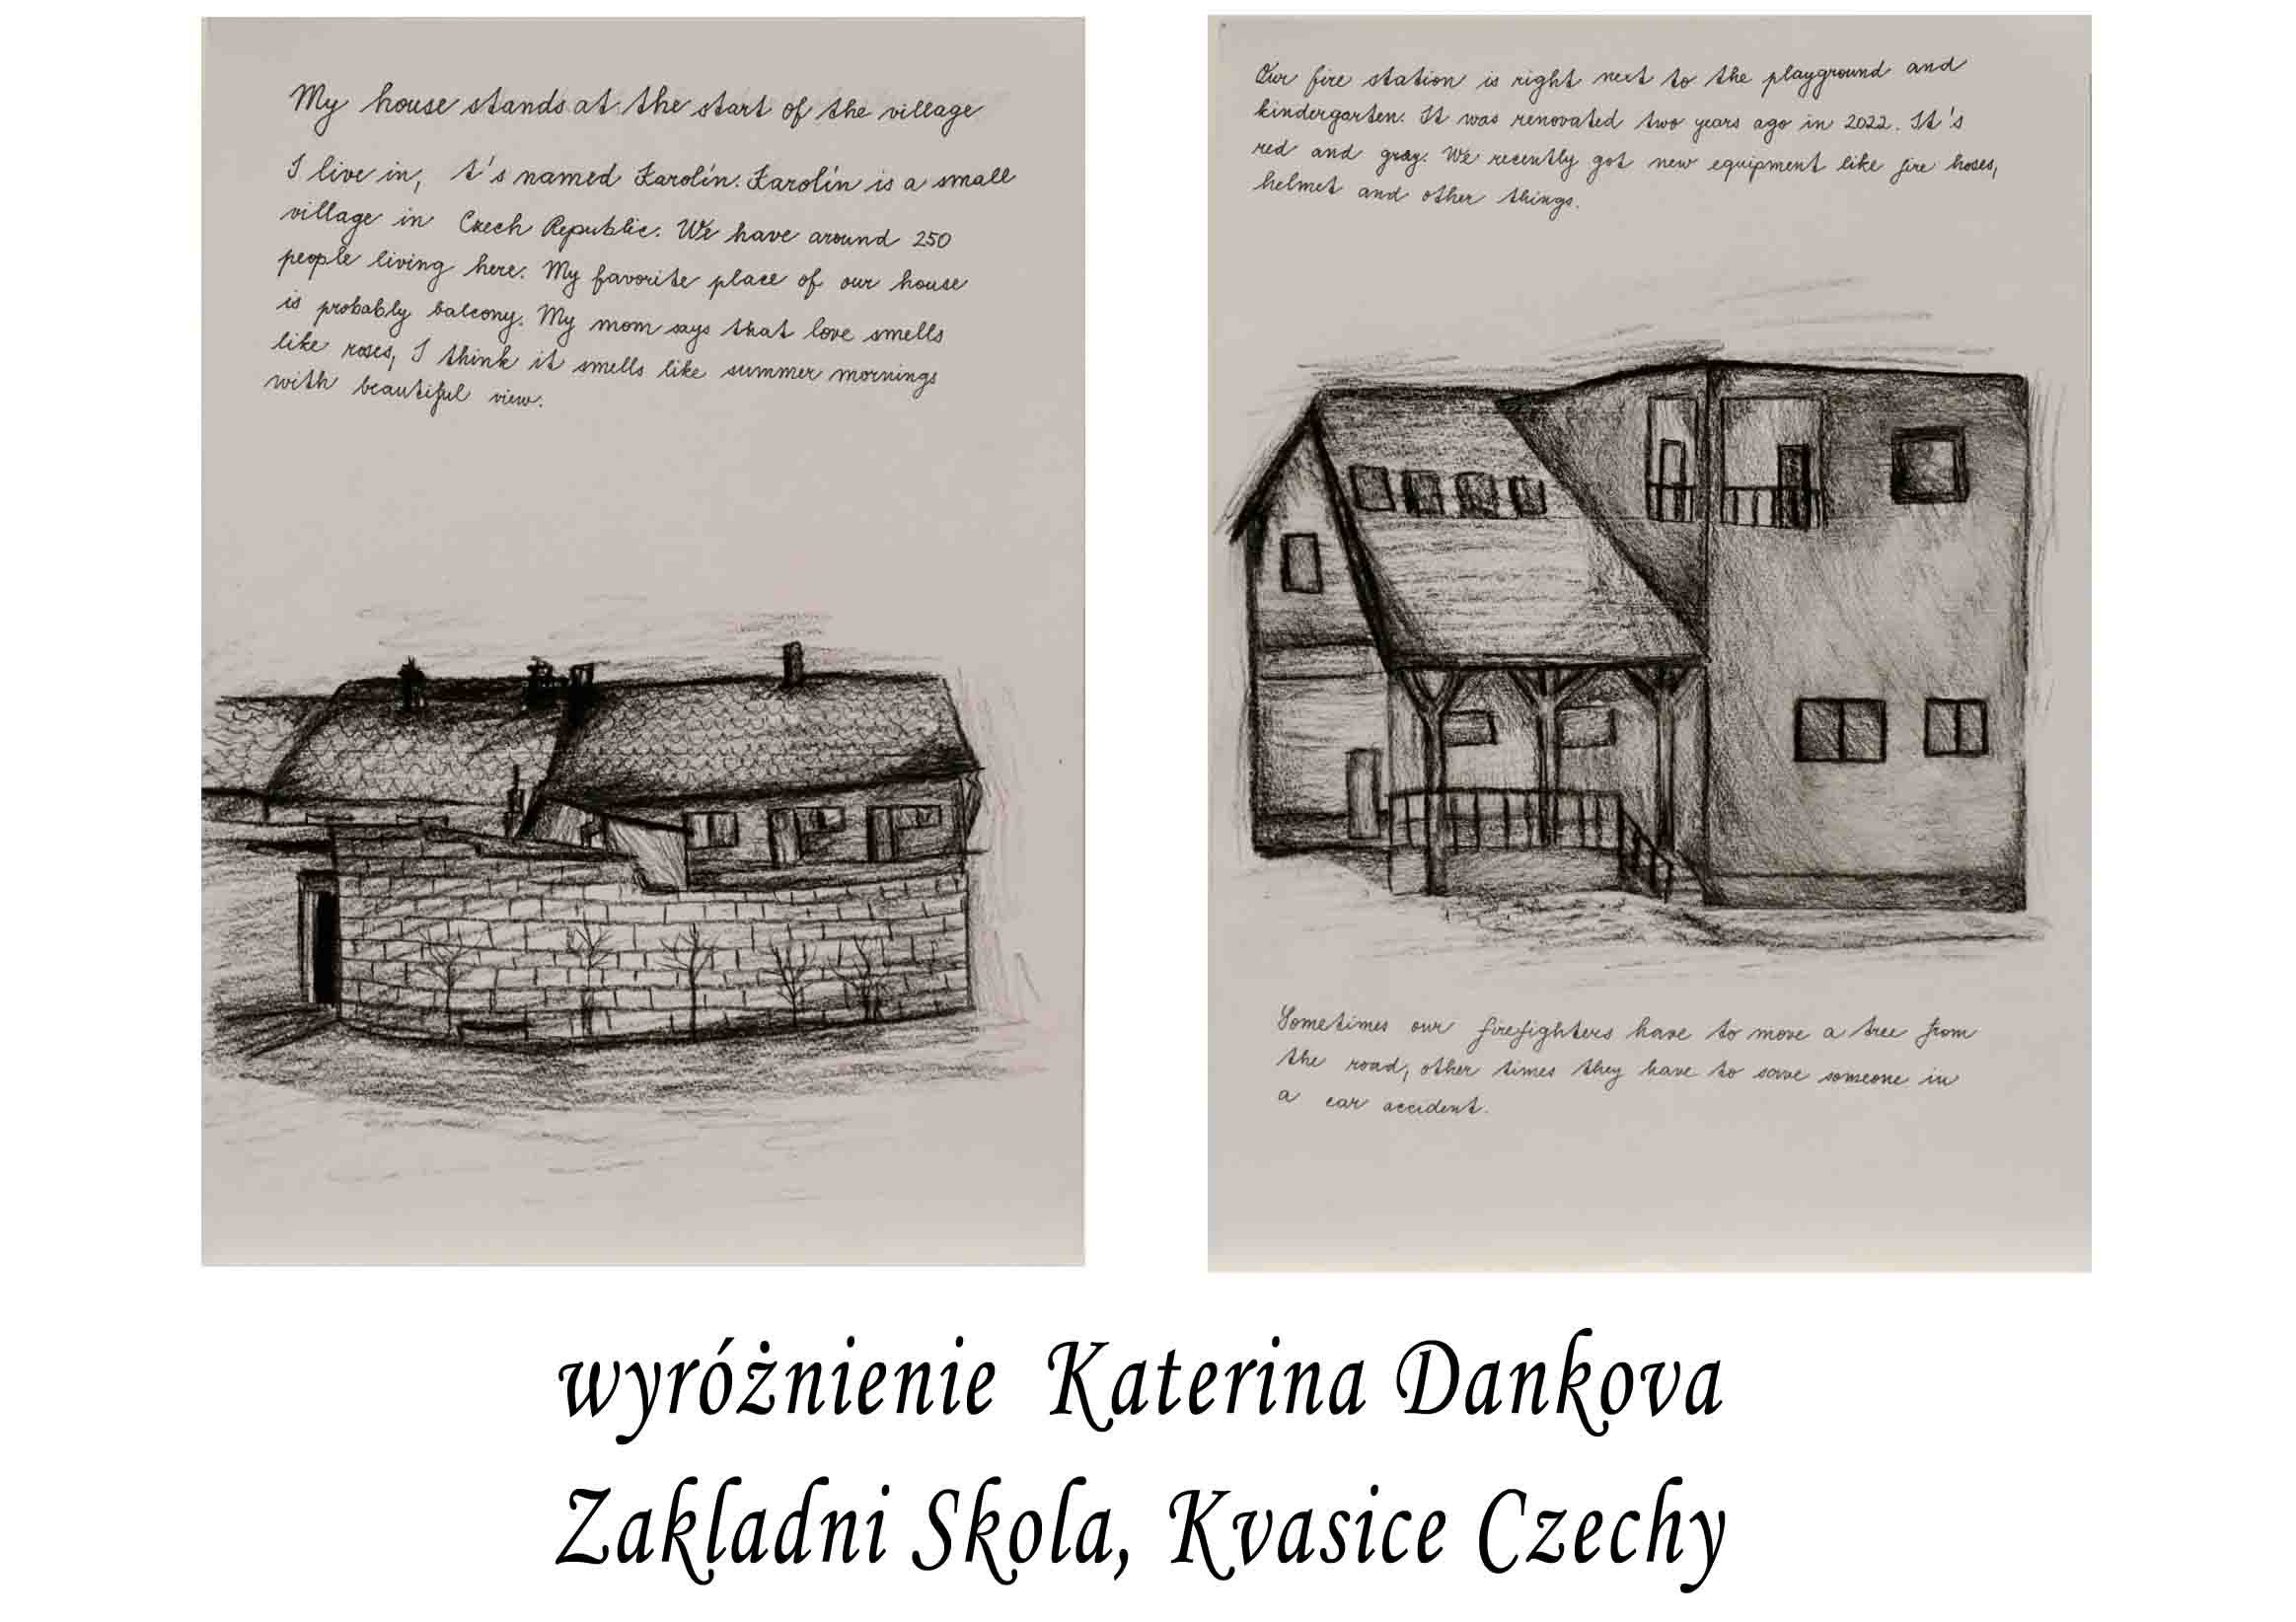 My house stands at the start of the village
I live in, t's named Karolín. Karolín is a small
village in Czech Republic. We have around 250
people living here. My favorite place of our house
is probably balcony. My mom says that love smells
like roses, I think it smells like summer mornings
with beautiful view.
Our fire station is right next to the playground and
kindergarten. It was renovated two years ago in 2022. It's
red and gray. We recently got new equipment like fire hoses,
helmet and other things.
Sometimes our firefighters have to move a tree from
the road, other times they have to save someone in
a car accident.
wyróżnienie Katerina Dankova
Zakladni Skola, Kvasice Czechy